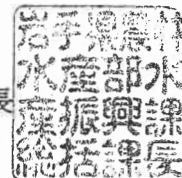 岩手県農林
水産部水
産振興課
総括課長